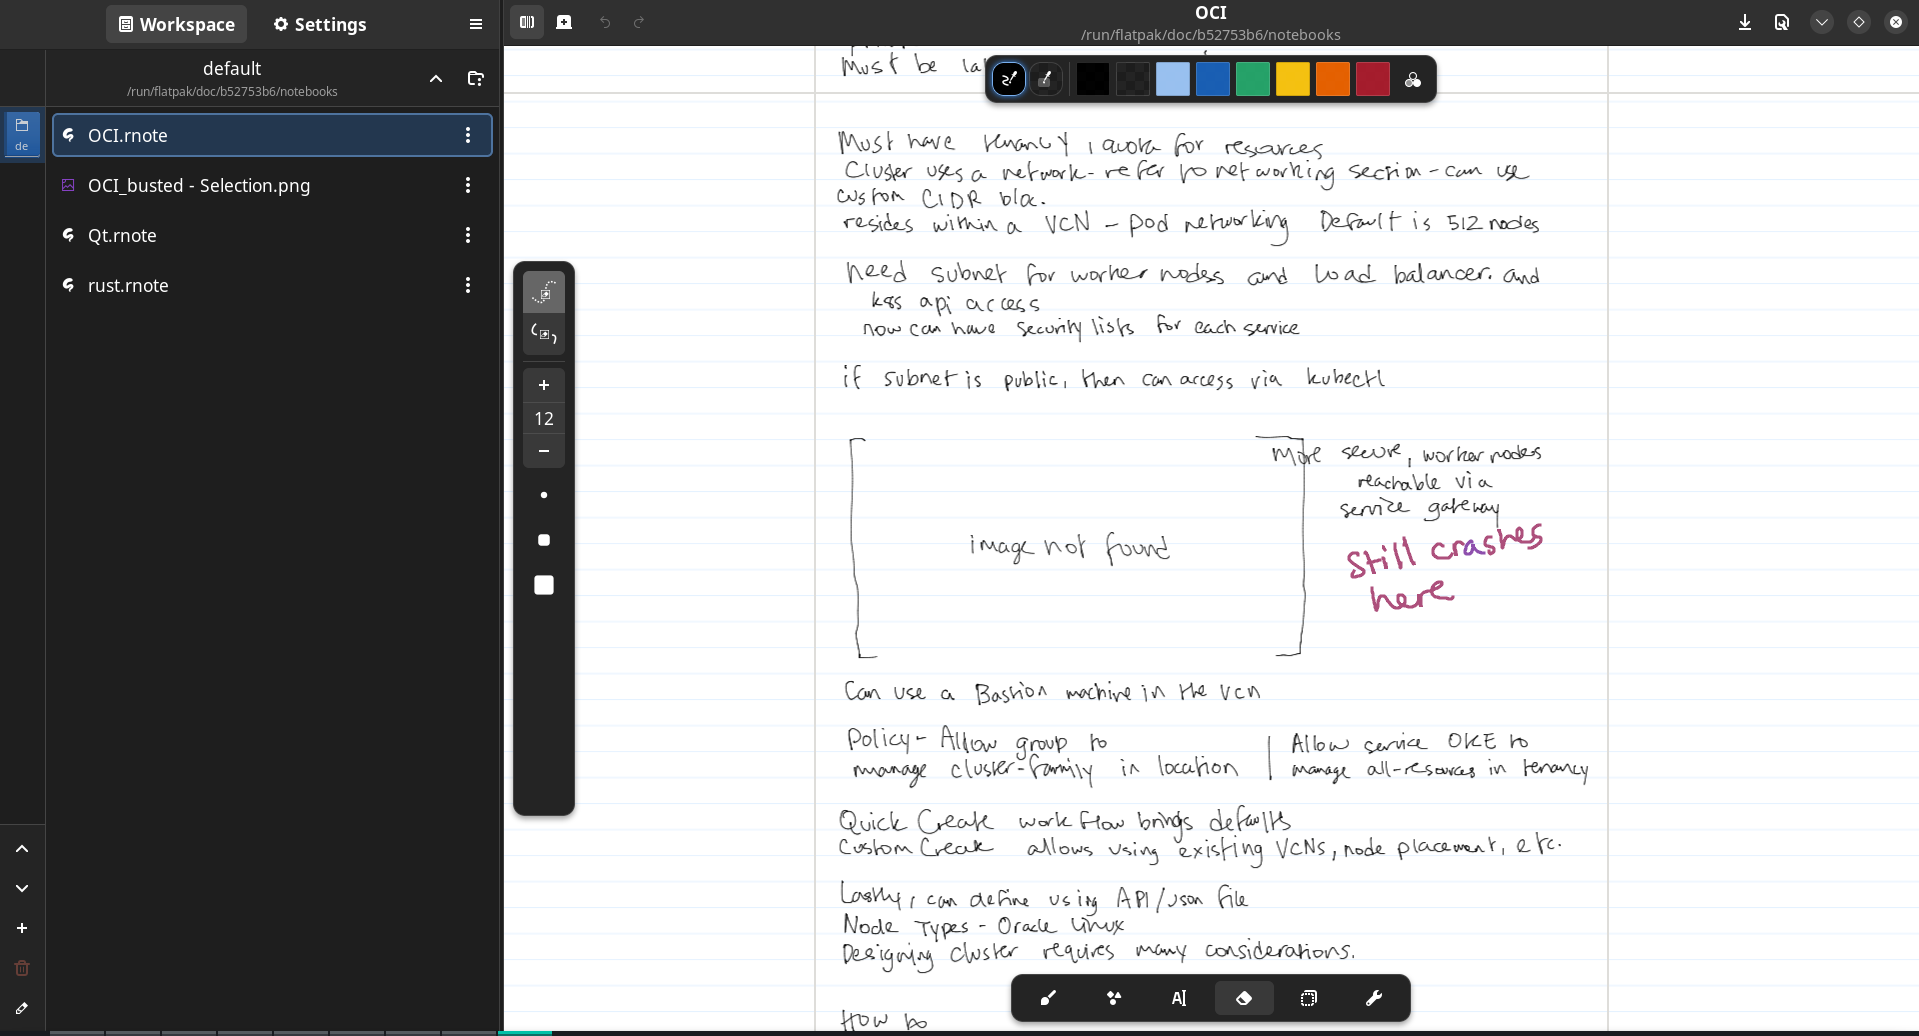 Workspace
Settings
default
/run/flatpak/doc/b52753b6/notebooks
de
OCI.rnote
OCI_busted - Selection.png
Qt.rnote
rust.rnote
OCI
/run/flatpak/doc/b52753b6/notebooks
12
Must be
Must have tenancy, quota for resources
Cluster uses a network - refer to networking section - can use
custom CIDR bloc.
resides within a VCN - pod networking Default is 512 nodes
need subnet for worker nodes and load balancer. and
k8s api access
now can have security lists for each service
if subnet is public, then can access via kubectl
image not found
More secure, worker nodes
reachable via
service gateway
Still crashes
here
Can use a Bastion machine in the vcn
Policy - Allow group to
manage cluster-family in location
Allow service OKE to
manage all-resources in tenancy
Quick Create workflow brings defaults
Custom Create allows using existing VCNs, node placement, etc.
Lastly, can define using API/json file
Node Types - Oracle Linux
Designing cluster requires many considerations.
How to
AI